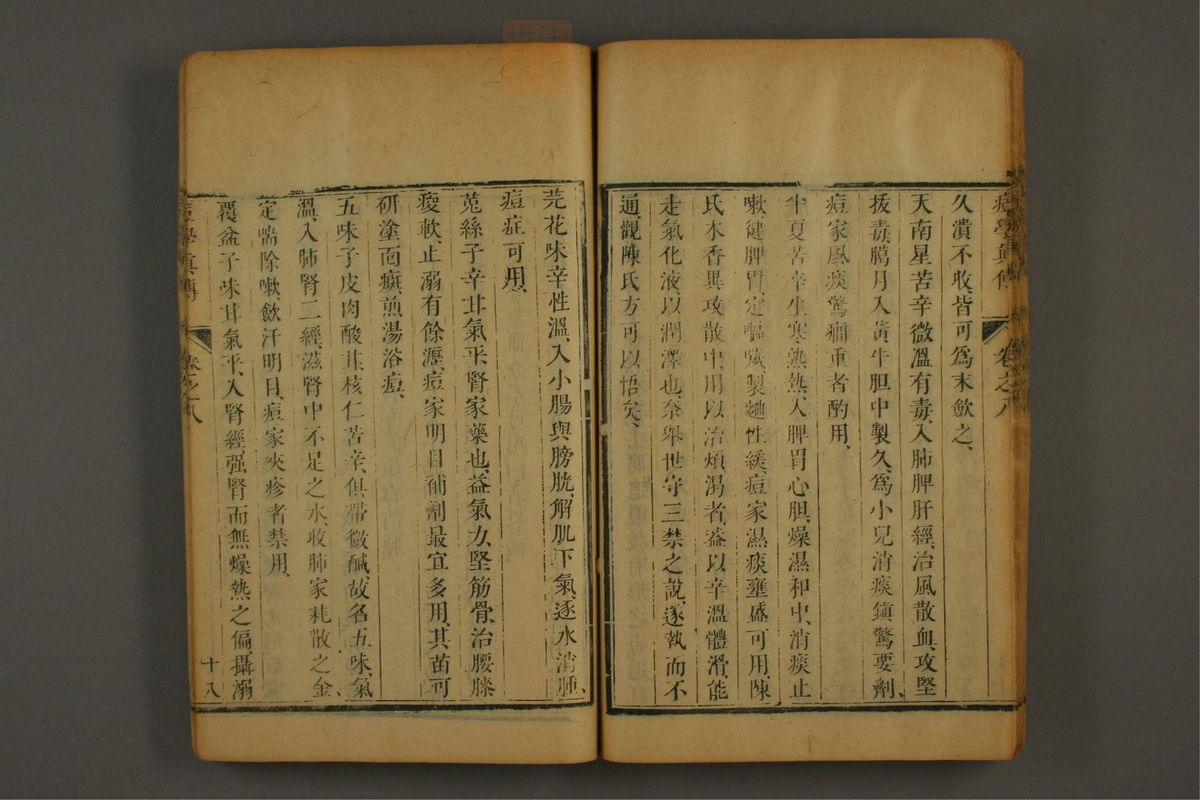 痘學真傳
卷之八
久潰不收皆可爲末歛之、
天南星苦辛微溫有毒、入肺脾肝經、治風散血、攻堅
拔毒、臈月入黃牛胆中製久、爲小兒消痰鎮驚要劑、
痘家風痰驚癎重者酌用、
半夏苦辛生寒熟熱、入脾胃心胆、燥濕和中、消痰止
嗽、健脾胃、定嘔噦、製麯性緩、痘家濕痰壅盛可用、陳
氏木香異攻散中、用以治煩渴者、葢以辛溫體滑、能
走氣化液、以潤澤也、奈舉世守三禁之說、遂執而不
通、觀陳氏方可以悟矣、
芫花味辛性溫、入小腸與膀胱、解肌下氣、逐水消腫、
痘症可用、
莵絲子辛甘氣平、腎家藥也、益氣力、堅筋骨、治腰膝
痠軟、止溺有餘瀝、痘家明目補劑最宜多用、其苗可
研塗面𤺺、煎湯浴痘、
五味子皮肉酸甘、核仁苦辛、俱帶微鹹、故名五味、氣
溫、入肺腎二經、滋腎中不足之水、收肺家耗散之金、
定喘除嗽、歛汗明目、痘家夾疹者禁用、
覆盆子味甘氣平、入腎經、强腎而無燥熱之偏、攝溺
痘學真傳
卷之八
十八